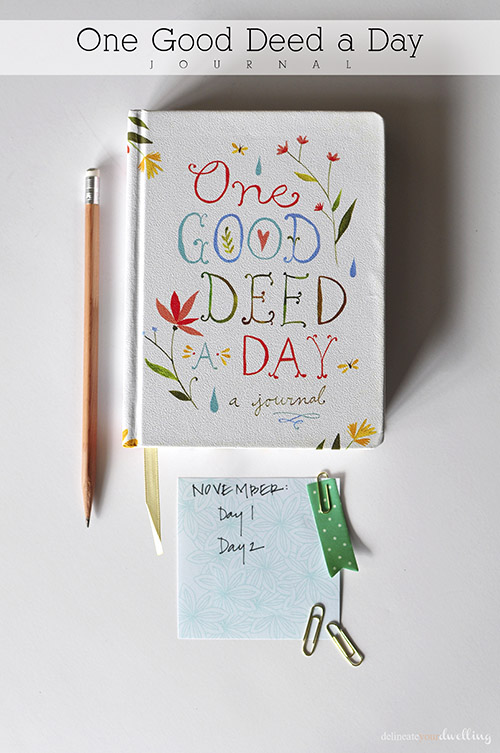 One Good Deed a Day
JOURNAL
One
GOOD
DEED
A DAY
a journal
NOVEMBER:
Day 1
Day 2
delineate your dwelling